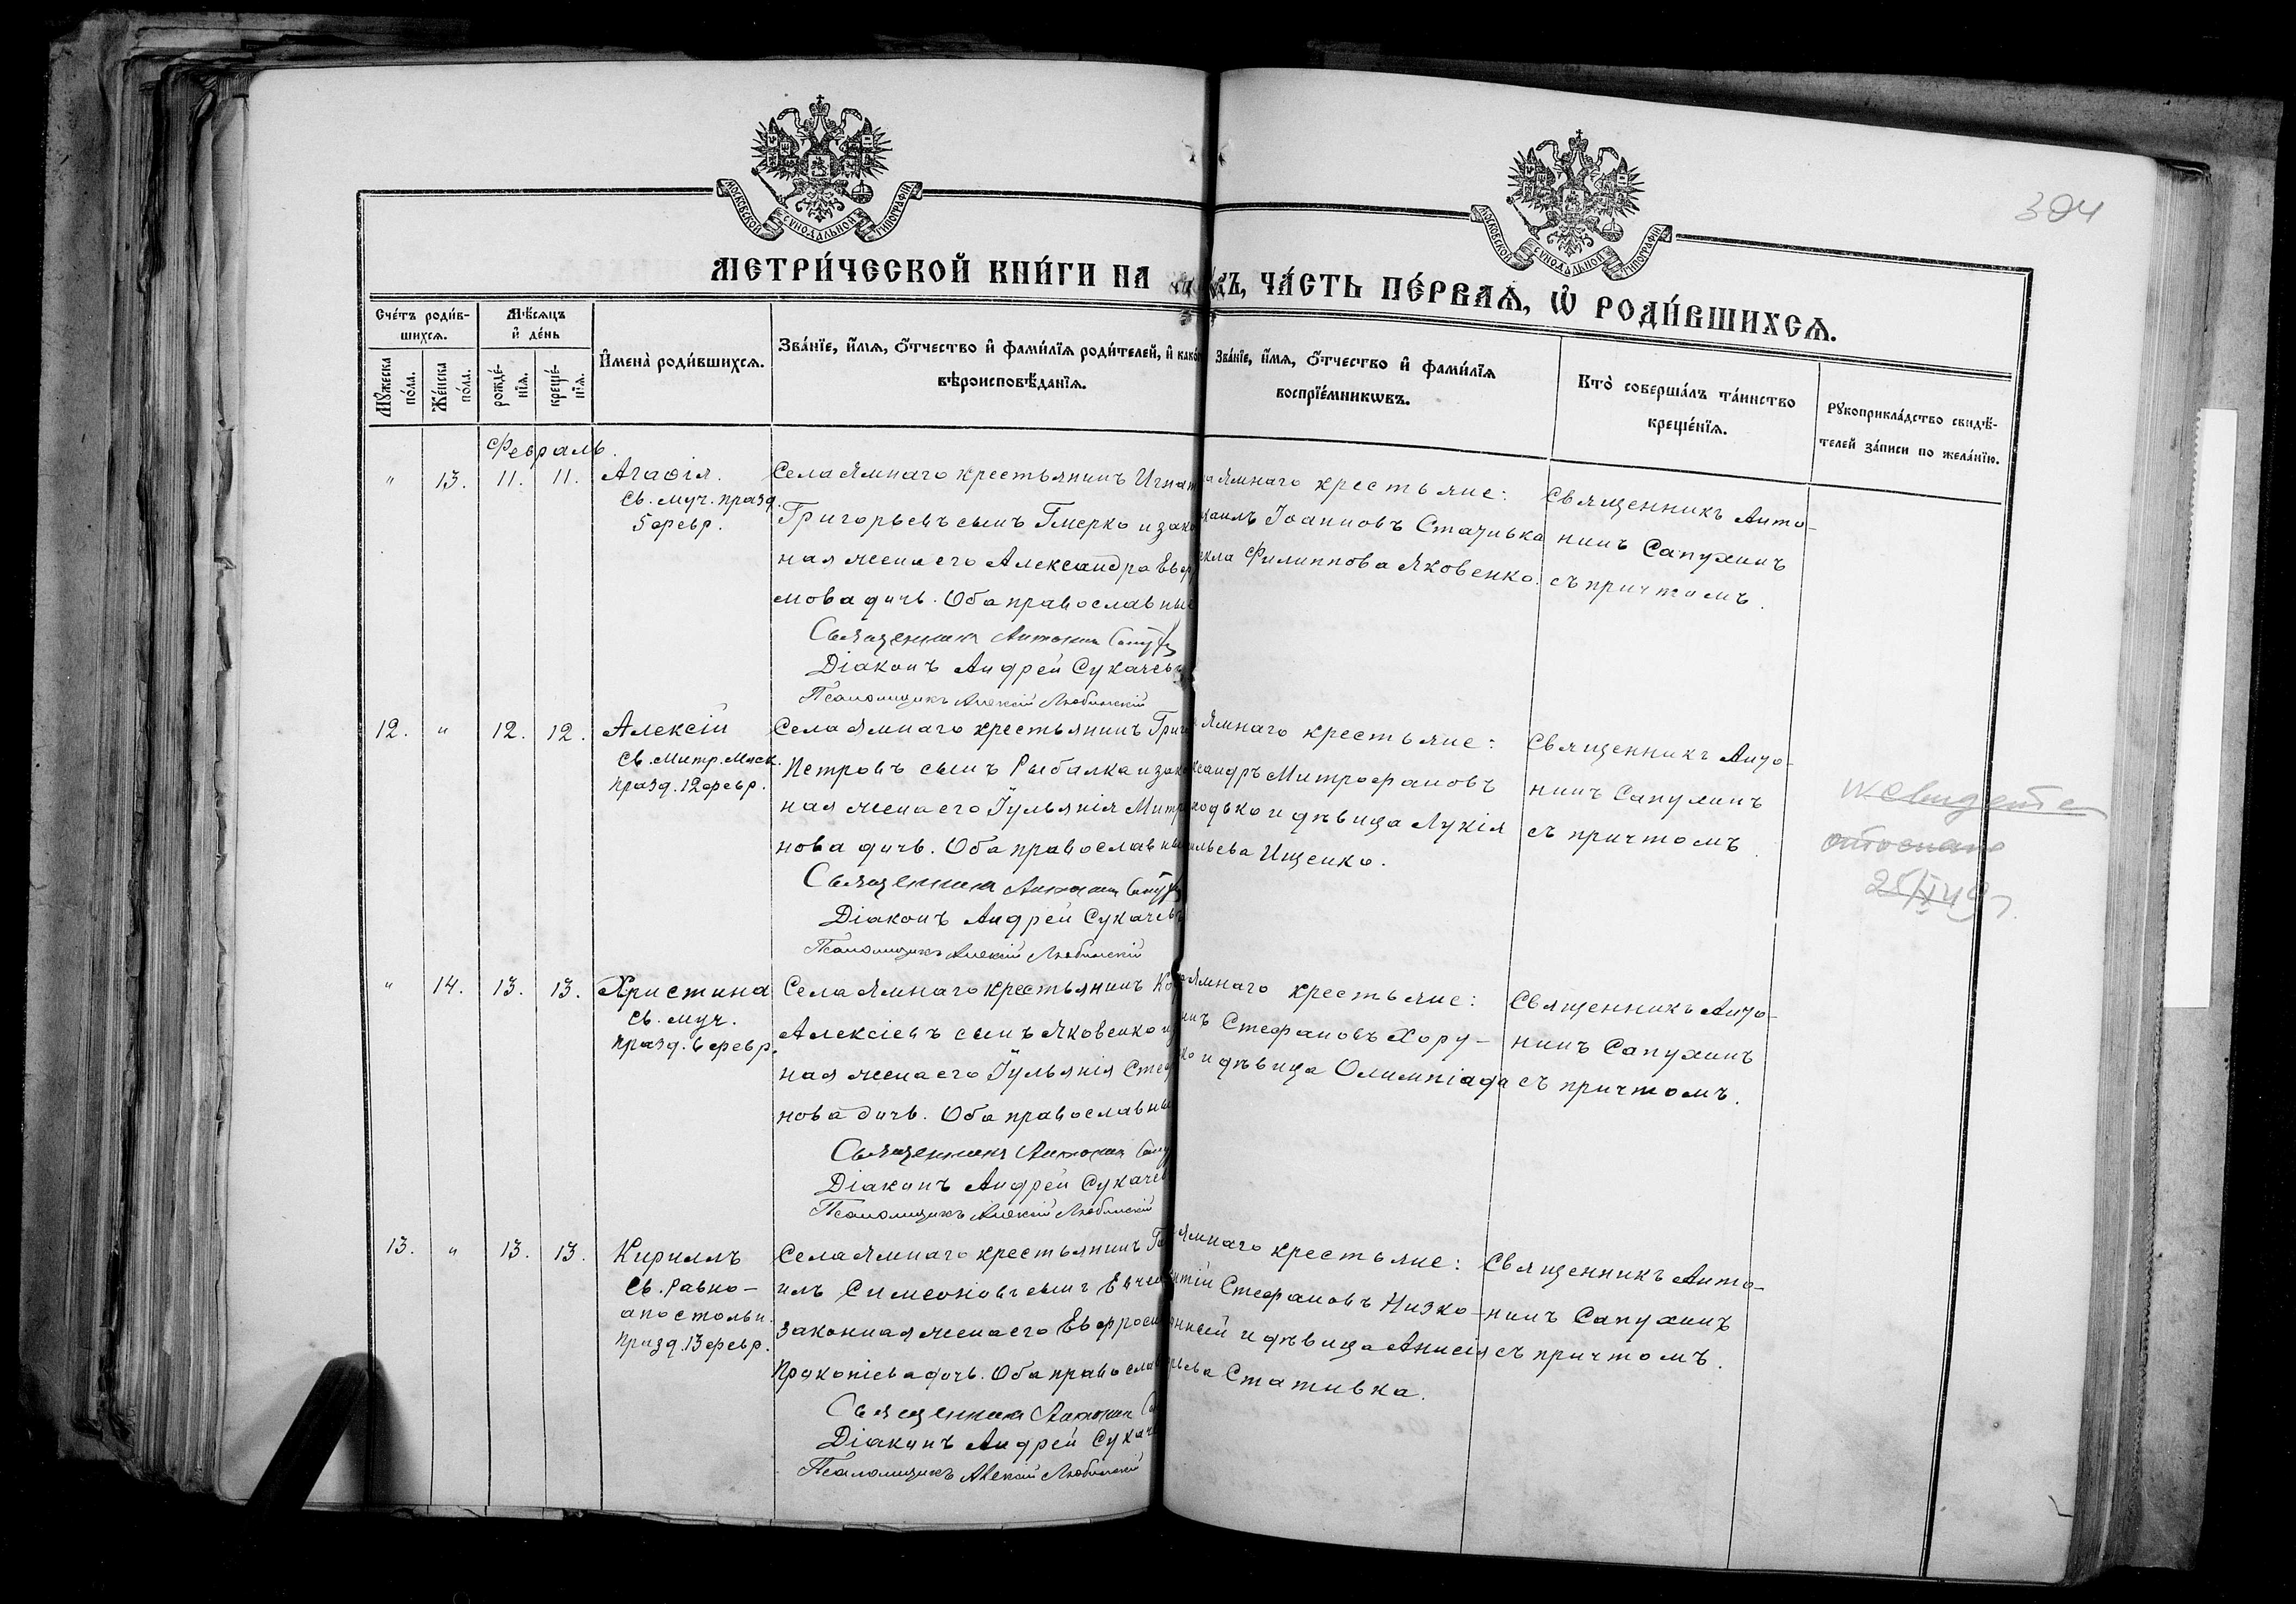 394
МОСКОВСКОЙ СѴНОДАЛЬНОЙ ТИПОГРАФІИ
МОСКОВСКОЙ СѴНОДАЛЬНОЙ ТИПОГРАФІИ
МЕТРИ́ЧЕСКОЙ КНИ́ГИ НА
ЧА́СТЬ ПЕ́РВАѦ, Ѽ РОДИ́ВШИХСѦ.
Сче́тъ роди́в-
шихсѧ.
Мꙋ́жеска по́ла.
Же́нска по́ла.
Мѣ́сѧцъ
и҆ де́нь
рожде́-
нїѧ.
креще́-
нїѧ.
И҆мена̀ роди́вшихсѧ.
Зва́нїе, и҆́мѧ, ѻ҆́тчество и҆ фами́лїѧ роди́телей, и҆
вѣроисповѣ́данїѧ.
Зва́нїе, и҆́мѧ, ѻ҆́тчество и҆ фами́лїѧ
воспрїе́мникѡвъ.
Кто̀ соверша́лъ та́инство
креще́нїѧ.
Рꙋкоприкла́дство свидѣ́-
телей за́писи по жела́нїю.
Февраль.
" 13. 11. 11. Агаѳія.
Св. муч. празд.
5 февр.
Села Ямнаго крестьянинъ
Григорьевъ сынъ Гмерко и
ная жена его Александра
мова дочь. Оба православные
Священникъ Антонин
Діаконъ Андрей Сукачевъ
Псаломщикъ Алексій Любинскій
Ямнаго крестьяне:
Іоанновъ Стативка
Филиппова Яковенко.
Священникъ Анто-
нинъ Сапухинъ
съ причтомъ.
12. " 12. 12. Алексій
Св. Митр. Моск.
празд. 12 февр.
Села Ямнаго крестьянинъ
Петровъ сынъ Рыбалка и
ная жена его Іульянія
нова дочь. Оба православные
Священникъ Антонин
Діаконъ Андрей Сукачевъ
Псаломщикъ Алексій Любинскій
Ямнаго крестьяне:
Митрофановъ
и дѣвица Лукія
Ищенко.
Священникъ Анто-
нинъ Сапухинъ
съ причтомъ.
" 14. 13. 13. Христина
Св. муч.
празд. 6 февр.
Села Ямнаго крестьянинъ
Алексіевъ сынъ Яковенко
ная жена его Іульянія
нова дочь. Оба православные
Священникъ Антонин
Діаконъ Андрей
Псаломщикъ Алексій Любинскій
Ямнаго крестьяне:
Стефановъ Хору-
и дѣвица Олимпіада
Священникъ Анто-
нинъ Сапухинъ
съ причтомъ.
13. " 13. 13. Кириллъ
Св. Равно-
апостольн.
празд. 13 февр.
Села Ямнаго крестьянинъ
илъ Симеоновъ сынъ
законная жена его
Прокопіева дочь. Оба
Священникъ Антонин
Діаконъ Андрей
Псаломщикъ Алексій Любинскій
Ямнаго крестьяне:
Стефановъ Низко-
и дѣвица Анисія
Стативка.
Священникъ Анто-
нинъ Сапухинъ
съ причтомъ.